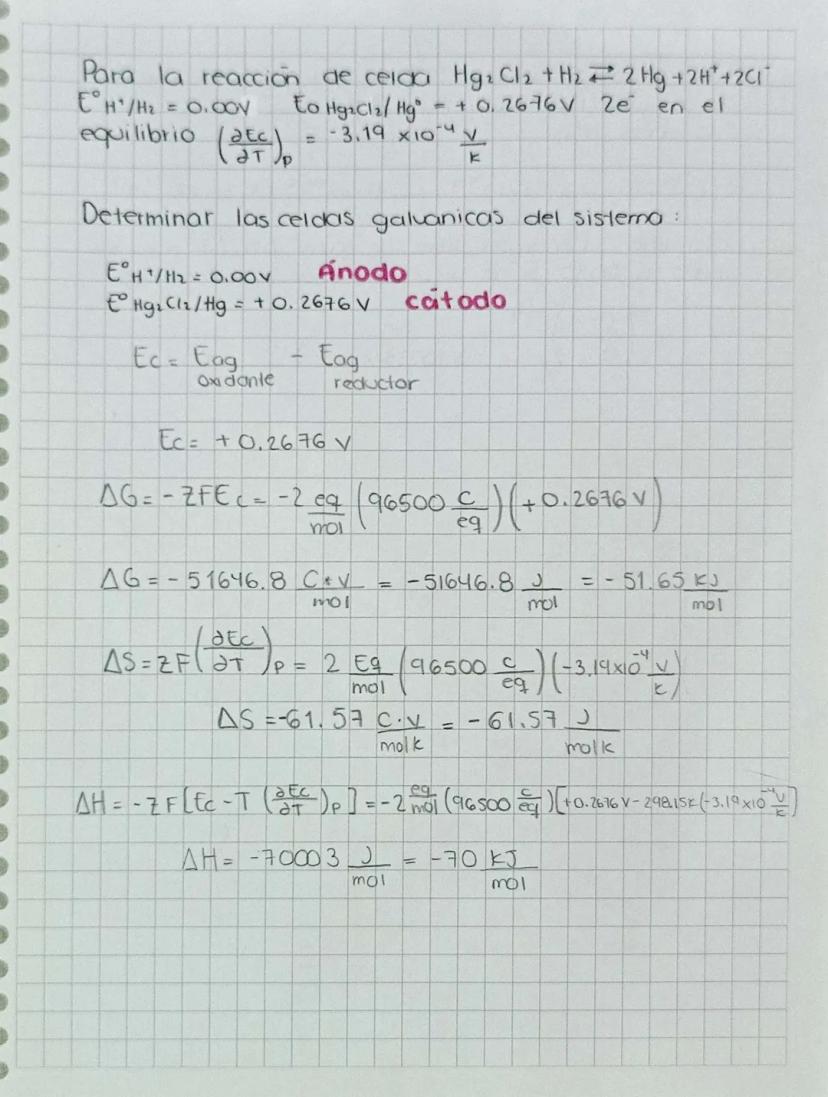 Para la reacción de celda Hg₂Cl₂ + H₂ ⇄ 2Hg + 2H⁺ + 2Cl⁻
E° H⁺/H₂ = 0.00V E₀ Hg₂Cl₂/Hg° = + 0.2676 V 2e⁻ en el
equilibrio (∂Ec/∂T)p = -3.19 x10⁻⁴ V/K
Determinar las celdas galvanicas del sistema:
E° H⁺/H₂ = 0.00V Ánodo
E° Hg₂Cl₂/Hg = + 0.2676 V cátodo
Ec = Eag oxidante - Eag reductor
Ec = + 0.2676 V
ΔG = - ZFEc = -2 eq/mol (96500 C/eq)(+0.2676 V)
ΔG = - 51646.8 C*V/mol = -51646.8 J/mol = - 51.65 KJ/mol
ΔS = ZF(∂Ec/∂T)p = 2 Eq/mol (96500 C/eq)(-3.19x10⁻⁴ V/K)
ΔS = -61.57 C·V/molK = -61.57 J/molK
ΔH = -ZF[Ec - T (∂Ec/∂T)p] = -2 eq/mol (96500 C/eq)[+0.2676 V - 298.15K(-3.19x10⁻⁴ V/K]
ΔH = -70003 J/mol = -70 KJ/mol